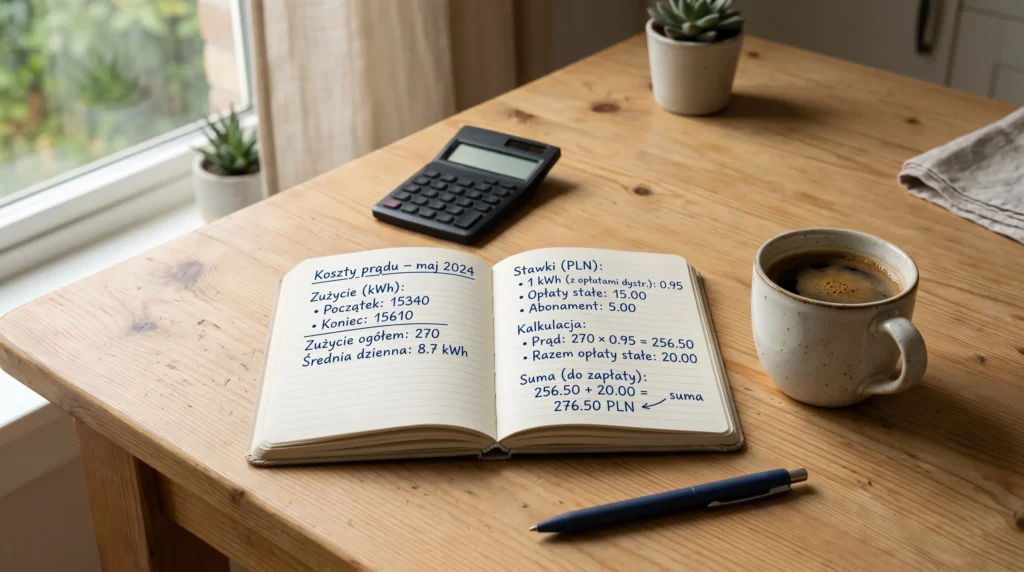 Koszty prądu – maj 2024
Zużycie (kWh):
• Początek: 15340
• Koniec: 15610
Zużycie ogółem: 270
Średnia dzienna: 8.7 kWh
Stawki (PLN):
• 1 kWh (z opłatami dystr.): 0.95
• Opłaty stałe: 15.00
• Abonament: 5.00
Kalkulacja:
• Prąd: 270 × 0.95 = 256.50
• Razem opłaty stałe: 20.00
Suma (do zapłaty):
256.50 + 20.00 =
276.50 PLN ← suma